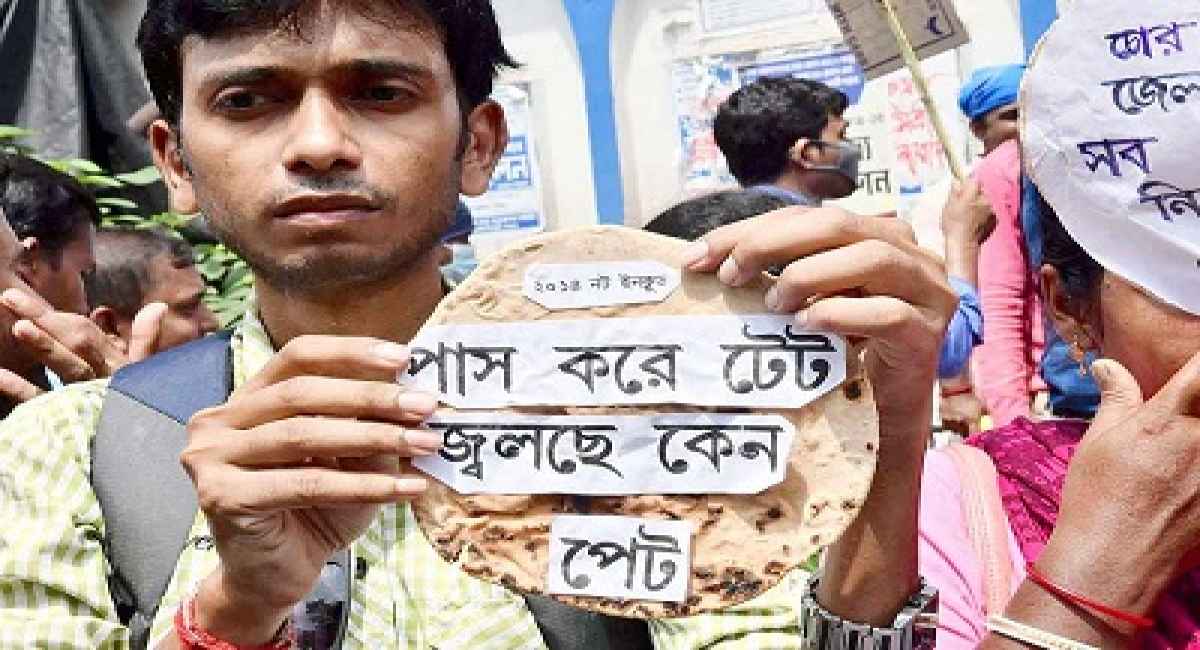 ২০১৪ নট ইনক্লুড
পাস করে টেট
জ্বলছে কেন
পেট
চোর
জেল
সব
নি